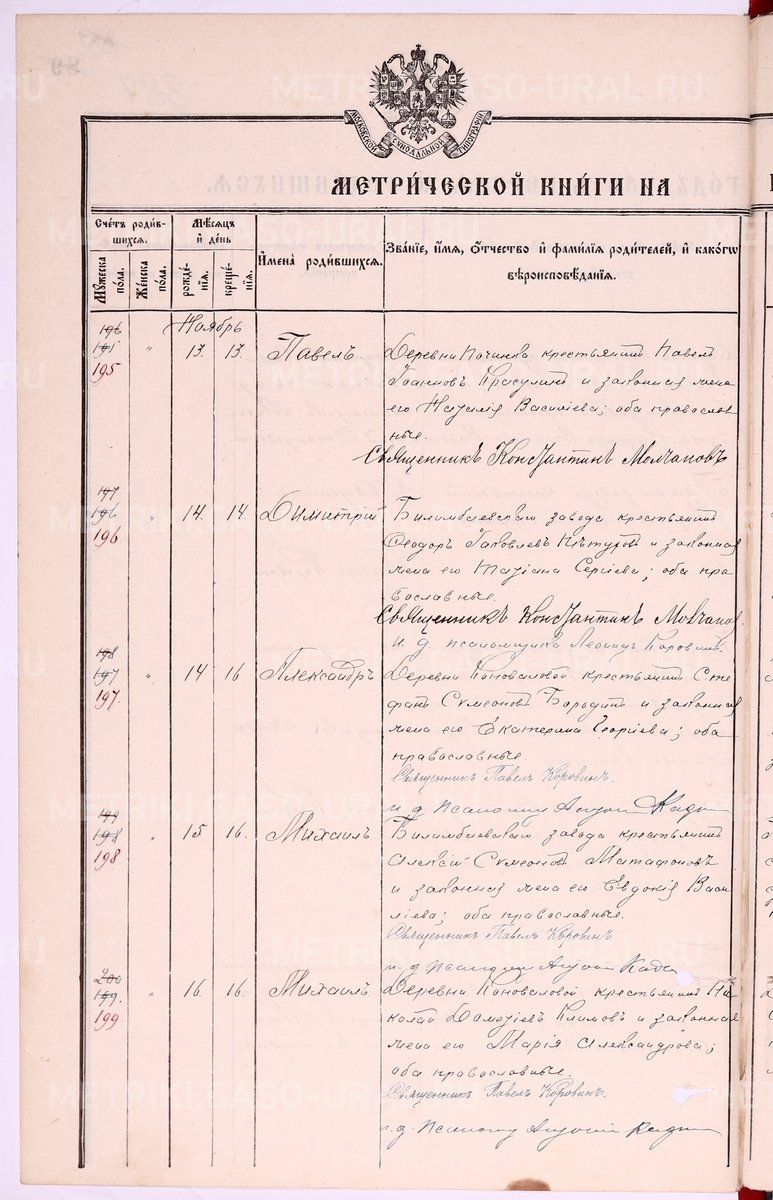 89
МОСКОВСКОЙ СУНОДАЛЬНОЙ ТИПОГРАФІИ
МЕТРИ́ЧЕСКОЙ КНИ́ГИ НА
Сче́тъ роди́в-
шихся.
Мꙋ́жеска
по́ла.
Же́нска
по́ла.
Мѣ́сяцъ
и҆ де́нь
рожде́-
нія.
креще́-
нія.
И҆мена̀ роди́вшихся.
Зва́ніе, и҆́мя, ѻ҆́тчество и҆ фами́лія роди́телей, и҆ како́гѡ
вѣроисповѣ́данія.
Ноябрь
196
195 " 13. 13. Павелъ. Деревни Починка крестьянинъ Павелъ
195
Іоанновъ и законная жена
его Наталія Васильева; оба православ
ные.
Священникъ Константинъ Молчановъ
197
196 " 14. 14. Димитрій Билимбаевскаго завода крестьянинъ
196
Ѳеодоръ Іаковлевъ и законная
жена его Татіана Сергіева; оба пра
вославные.
Священникъ Константинъ Молчанов
и. д. псаломщика Леонидъ Коровинъ.
198
197 " 14 16 Александръ Деревни Коноваловой крестьянинъ Сте
197.
фанъ Сѵмеоновъ Бородинъ и законная
жена его Екатерина Георгіева; оба
православные.
Священникъ Павелъ Коровинъ.
и. д. Псалом
199
198 " 15 16. Михаилъ Билимбаевскаго завода крестьянинъ
198
Алексій Сѵмеоновъ Матафоновъ
и законная жена его Евдокія Васи
ліева; оба православные.
Священникъ Павелъ Коровинъ
и. д. Псалом
200
199. " 16. 16. Михаилъ. Деревни Коноваловой крестьянинъ Ни
199.
колай Климовъ и законная
жена его Марія Александрова;
оба православные.
Священникъ Павелъ Коровинъ.
и. д. Псалом